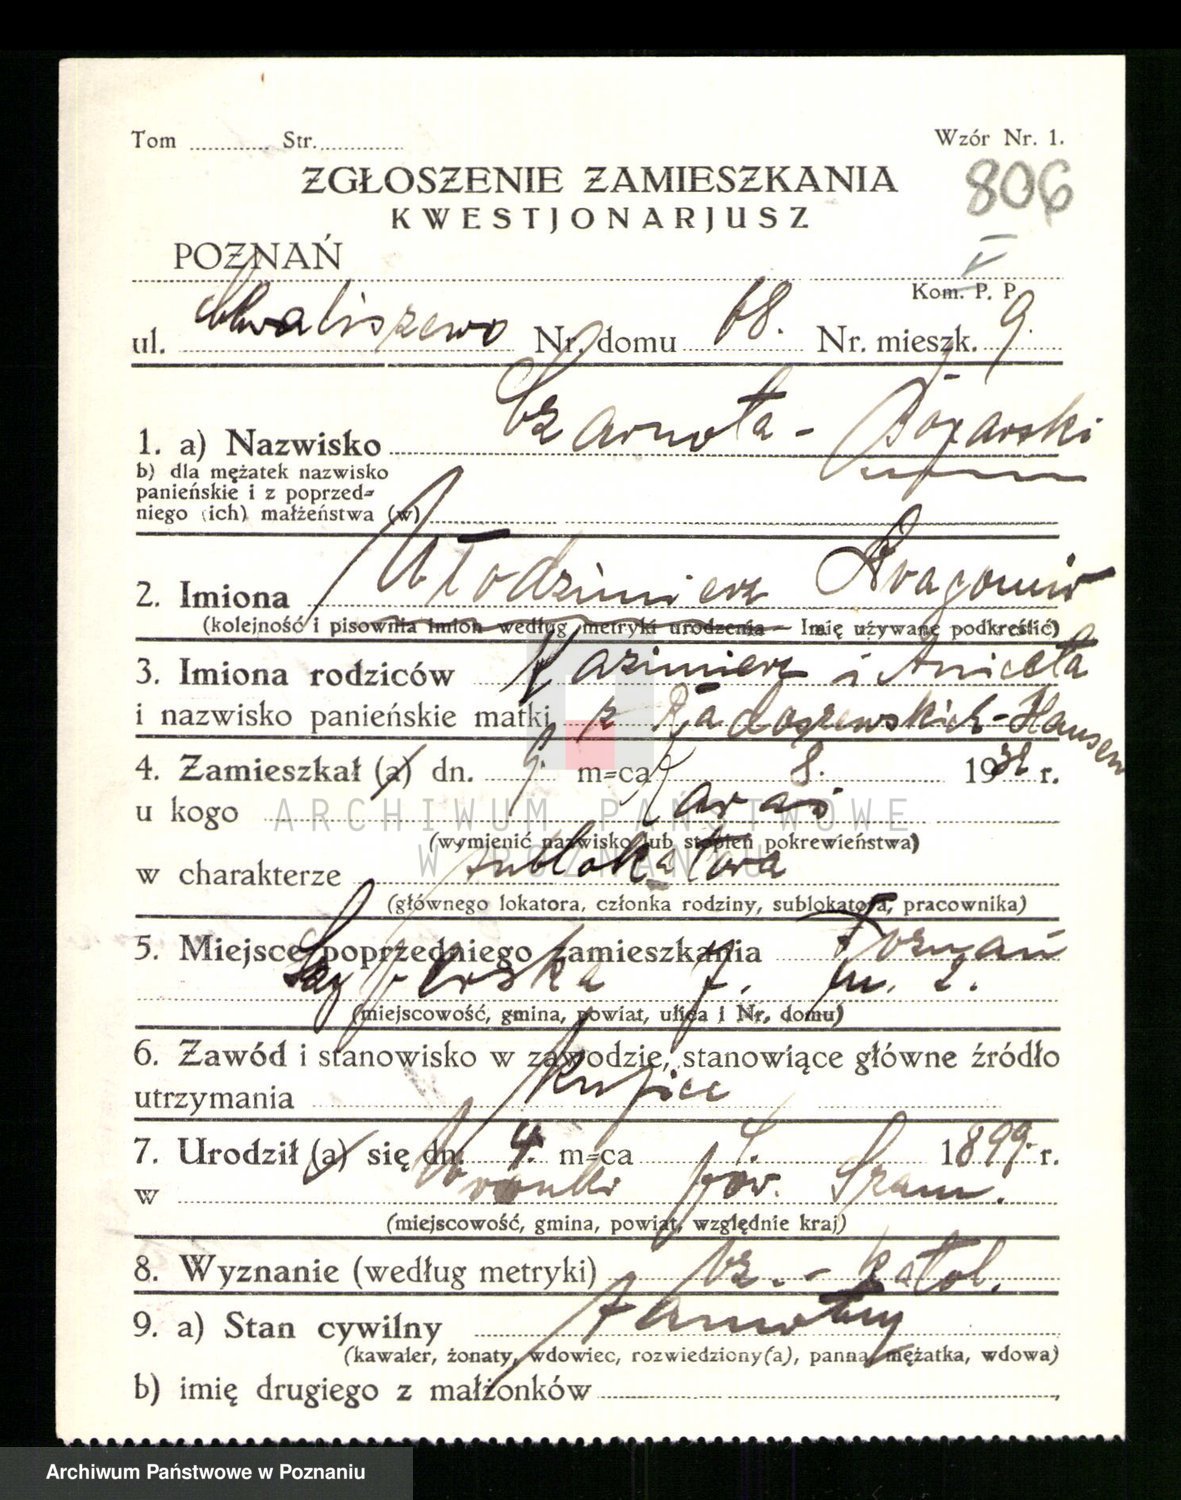 Tom ............ Str. ............
Wzór Nr. 1.
ZGŁOSZENIE ZAMIESZKANIA
806
KWESTJONARJUSZ
POZNAŃ
V
Kom. P. P.
ul. Chwaliszewo Nr. domu 68. Nr. mieszk. 9.
1. a) Nazwisko Czarnota-Bojarski
b) dla mężatek nazwisko
panieńskie i z poprzed-
niego (ich) małżeństwa (w)
2. Imiona Włodzimierz Dragomir
(kolejność i pisownia imion według metryki urodzenia — Imię używane podkreślić)
3. Imiona rodziców Kazimierz i Aniceta
i nazwisko panieńskie matki z Radoszewskich-Hansen
4. Zamieszkał (a) dn. 9. m-ca 8. 19 r.
u kogo Karaś
(wymienić nazwisko lub stopień pokrewieństwa)
w charakterze sublokatora
(głównego lokatora, członka rodziny, sublokatora, pracownika)
5. Miejsce poprzedniego zamieszkania Poznań
Szyperska 7. m. 2.
(miejscowość, gmina, powiat, ulica i Nr. domu)
6. Zawód i stanowisko w zawodzie, stanowiące główne źródło
utrzymania kupiec
7. Urodził (a) się dn. 4. m-ca 4. 1899 r.
w Wronki pow. Szam.
(miejscowość, gmina, powiat, względnie kraj)
8. Wyznanie (według metryki) rz.-katol.
9. a) Stan cywilny
(kawaler, żonaty, wdowiec, rozwiedziony(a), panna, mężatka, wdowa)
b) imię drugiego z małżonków
ARCHIWUM PAŃSTWOWE
W POZNANIU
Archiwum Państwowe w Poznaniu